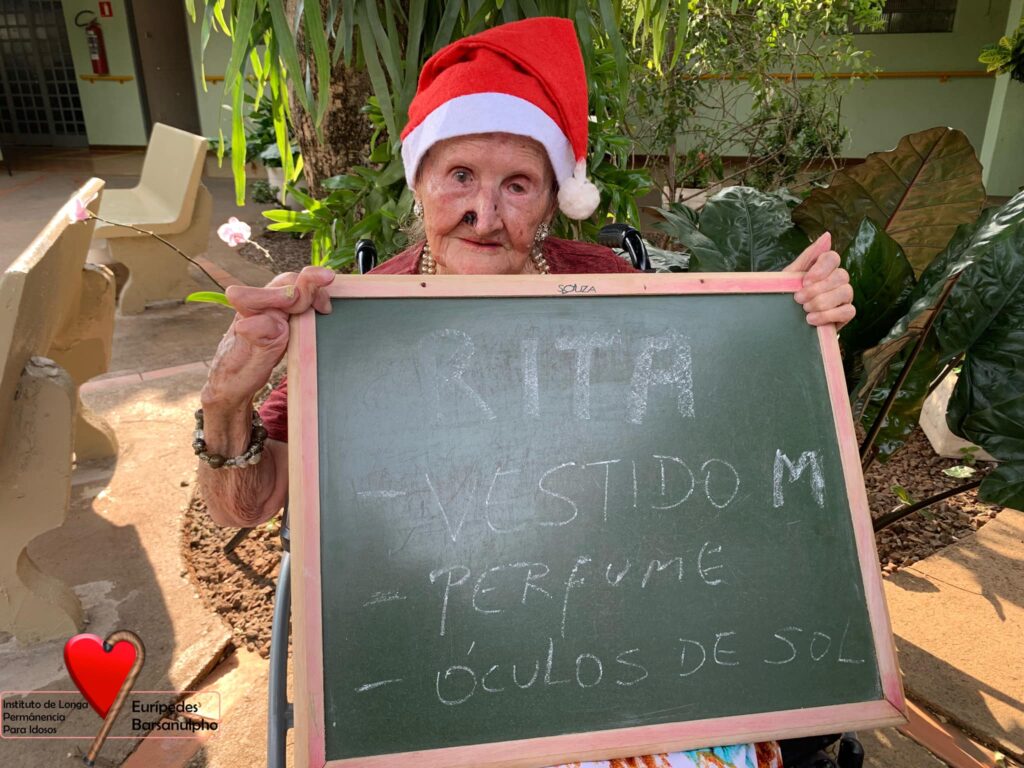 SOUZA
RITA
- VESTIDO M
- PERFUME
- ÓCULOS DE SOL
Instituto de Longa
Permánencia
Para Idosos
Eurípedes
Barsanulpho